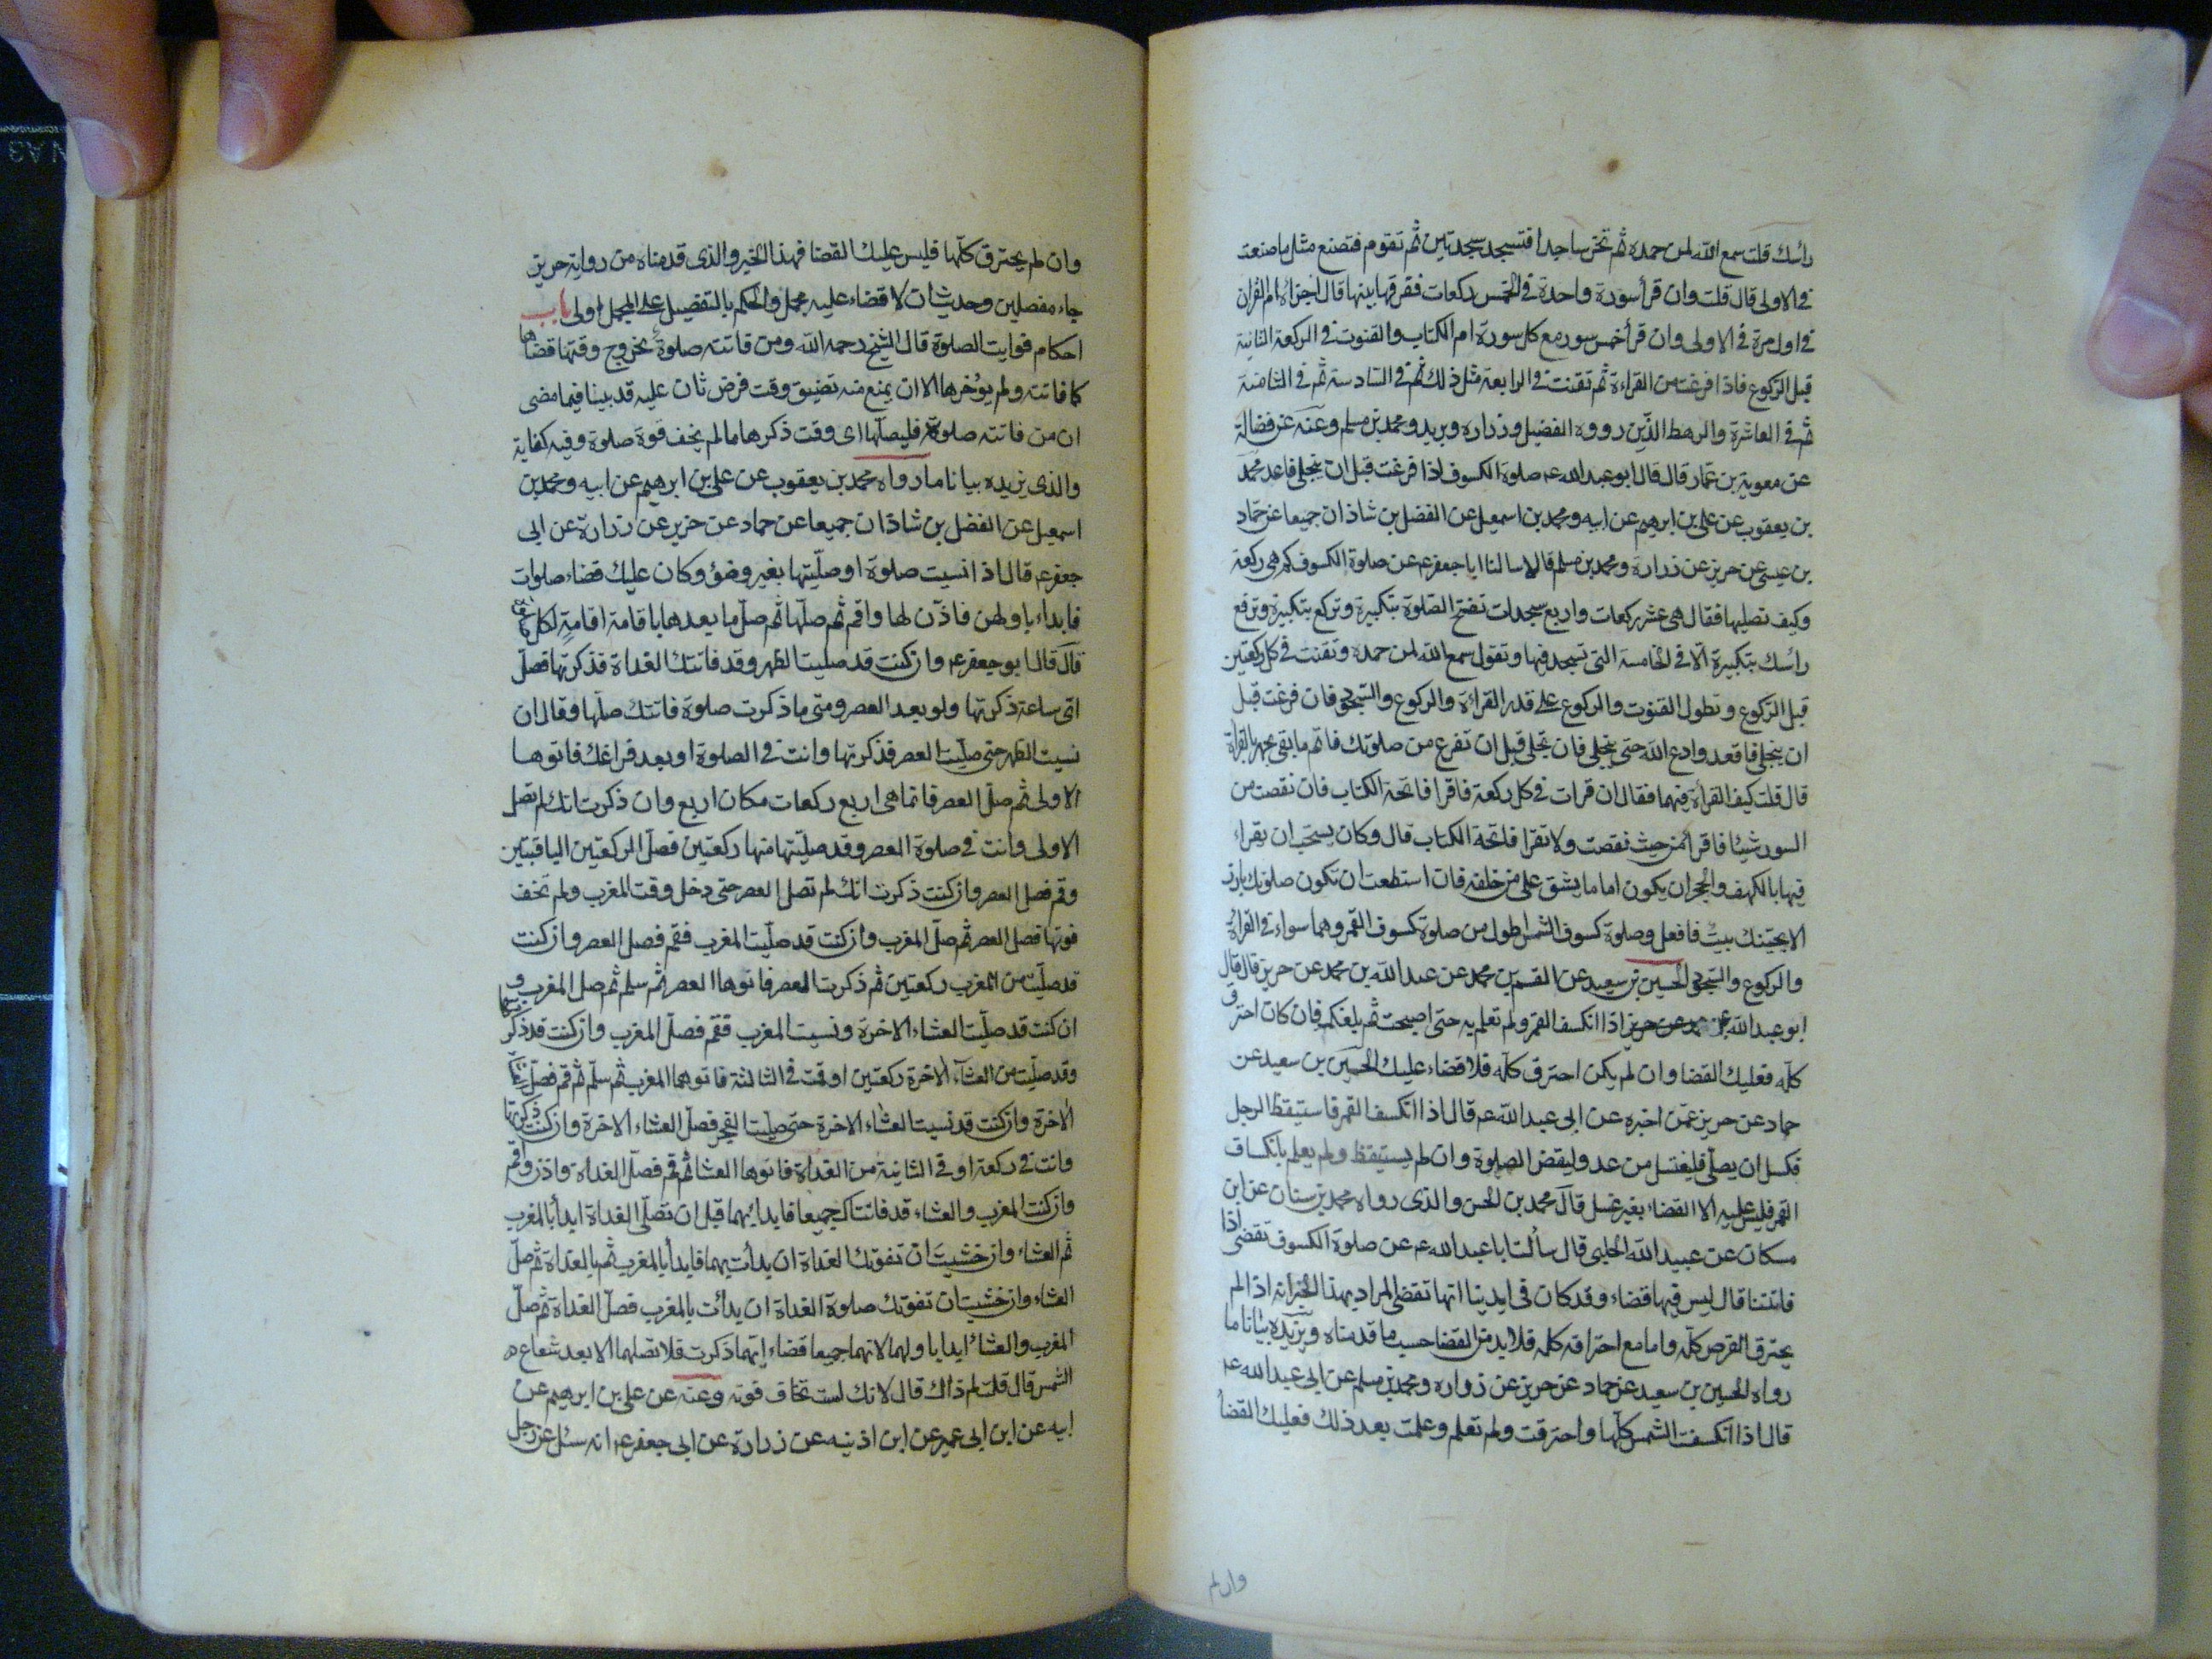 رأسك قلت سمع الله لمن حمده ثم تخر ساجدا فتسجد سجدتين ثم تقوم فتصنع مثل ما صنعت
في الاولى قال قلت وان قرأ سورة واحدة في الخمس ركعات ففرقها بينها قال اجزأه ام القران
في اول مرة في الاولى وان قرأ خمس سور مع كل سورة ام الكتاب والقنوت في الركعة الثانية
قبل الركوع فاذا فرغت من القراءة ثم تقنت في الرابعة مثل ذلك ثم في السادسة ثم في الثامنة
ثم في العاشرة والرهط الذين رووه الفضيل وزراره وبريد ومحمد بن مسلم وعنه عن فضالة
عن معوية بن عمار قال قال ابو عبد الله عه صلوة الكسوف اذا فرغت قبل ان ينجلي فاعد محمد
بن يعقوب عن علي بن ابرهيم عن ابيه ومحمد بن اسمعيل عن الفضل بن شاذان جميعا عن حماد
بن عيسى عن حريز عن زرارة ومحمد بن مسلم قالا سالنا ابا جعفر عه عن صلوة الكسوف كم هى ركعة
وكيف نصليها فقال هى عشر ركعات واربع سجدات تفتح الصلوة بتكبيرة وتركع بتكبيرة وترفع
رأسك بتكبيرة الا في الخامسة التى تسجد فيها وتقول سمع الله لمن حمده وتقنت في كل ركعتين
قبل الركوع وتطول القنوت والركوع على قدر القراءة والركوع والسجود فان فرغت قبل
ان ينجلي فاقعد وادع الله حتى ينجلي فان تجلى قبل ان تفرغ من صلوتك فاتم ما بقى تجهر بالقراة
قال قلت كيف القراءة فيهما فقال ان قرات في كل ركعة فاقرا فاتحة الكتاب فان نقصت من
السور شيئا فاقرأ من حيث نقصت ولا تقرا فاتحة الكتاب قال وكان يستحب ان يقراء
فيها بالكهف والحجر ان يكون اماما يشق على من خلفه فان استطعت ان تكون صلوتك بارزا
لا يجننك بيت فافعل وصلوة كسوف الشمس اطول من صلوة كسوف القمر وهما سواء في القراة
والركوع والسجود الحسين بن سعيد عن القسم بن محمد عن عبد الله بن محمد عن حريز قال قال
ابو عبد الله عه اذا انكسف القمر ولم تعلم به حتى اصبحت ثم بلغكم فان كان احترق
كله فعليك القضا وان لم يكن احترق كله فلا قضاء عليك الحسين بن سعيد عن
حماد عن حريز عمن اخبره عن ابى عبد الله عه قال اذا انكسف القمر فاستيقظ الرجل
فكسل ان يصلي فليغتسل من غد وليقض الصلوة وان لم يستيقظ ولم يعلم بانكساف
القمر فليس عليه الا القضاء بغير غسل قال محمد بن الحسن والذى رواه محمد بن سنان عن ابن
مسكان عن عبيد الله الحلبي قال سألت ابا عبد الله عه عن صلوة الكسوف تقضى اذا
فاتتنا قال ليس فيها قضاء وقد كان في ايدينا انها تقضى المراد بهذا الخبر انه اذا لم
يحترق القرص كله واما مع احتراقه كله فلا بد من القضا حسب ما قدمناه ويزيده بيانا ما
رواه الحسين بن سعيد عن حماد عن حريز عن زراره ومحمد بن مسلم عن ابى عبد الله عه
قال اذا انكسفت الشمس كلها واحترقت ولم تعلم وعلمت بعد ذلك فعليك القضا
وان لم
وان لم يحترق كلها فليس عليك القضا فهذا الخبر والذى قدمناه من رواية حريز
جاء مفصلين وحديث ان لا قضاء عليه مجمل والحكم بالتفصيل على المجمل اولى باب
احكام فوايت الصلوة قال الشيخ رحمه الله ومن فاتته صلوة بخروج وقتها قضاها
كما فاتته ولم يؤخرها الا ان يمنع منه تضيق وقت فرض ثان عليه قد بينا فيما مضى
ان من فاتته صلوة فليصلها اى وقت ذكرها ما لم يخف فوة صلوة وفيه كفاية
والذى نزيده بيانا ما رواه محمد بن يعقوب عن علي بن ابرهيم عن ابيه ومحمد بن
اسمعيل عن الفضل بن شاذان جميعا عن حماد عن حريز عن زرارة عن ابى
جعفر عه قال اذا نسيت صلوة او صليتها بغير وضوء وكان عليك قضاء صلوات
فابداء باولهن فاذن لها واقم ثم صلها ثم صل ما بعدها باقامة اقامة لكل
قال قال ابو جعفر عه وان كنت قد صليت الظهر وقد فاتتك الغداة فذكرتها فصل
اتى ساعة ذكرتها ولو بعد العصر ومتى ما ذكرت صلوة فاتتك صلها وقال ان
نسيت الظهر حتى صليت العصر فذكرتها وانت في الصلوة او بعد فراغك فانوها
الاولى ثم صل العصر فانما هى اربع ركعات مكان اربع وان ذكرت انك لم تصل
الاولى وانت في صلوة العصر وقد صليتها منها ركعتين فصل الركعتين الباقيتين
وقم فصل العصر وان كنت ذكرت انك لم تصل العصر حتى دخل وقت المغرب ولم تخف
فوتها فصل العصر ثم صل المغرب وان كنت قد صليت المغرب فقم فصل العصر وان كنت
قد صليت من المغرب ركعتين ثم ذكرت العصر فانوها العصر ثم سلم ثم صل المغرب و
ان كنت قد صليت العشاء الاخرة ونسيت المغرب فقم فصل المغرب وان كنت قد ذكرتها
وقد صليت من العشاء الاخرة ركعتين او قمت في الثالثة فانوهما المغرب ثم سلم ثم قم فصل
الاخرة وان كنت قد نسيت العشاء الاخرة حتى صليت الفجر فصل العشاء الاخرة وان كنت ذكرتها
وانت في ركعة او في الثانية من الغداة فانوها العشا ثم قم فصل الغداة واذن واقم
وان كنت المغرب والعشاء قد فاتتاك جميعا فابدا بهما قبل ان تصلى الغداة ابدأ بالمغرب
ثم العشاء وان خشيت ان تفوتك الغداة ان بدأت بهما فابدأ بالمغرب ثم بالغداة ثم صل
العشاء وان خشيت ان تفوتك صلوة الغداة ان بدأت بالمغرب فصل الغداة ثم صل
المغرب والعشاء ابدا باولهما لانهما جميعا قضاء ايتهما ذكرت فلا تصلهما الا بعد شعاع
الشمس قال قلت لم ذاك قال لانك لست تخاف فوته وعنه عن علي بن ابرهيم عن
ابيه عن ابن ابى عمير عن ابن اذنيه عن زرارة عن ابى جعفر عه انه سئل عن رجل